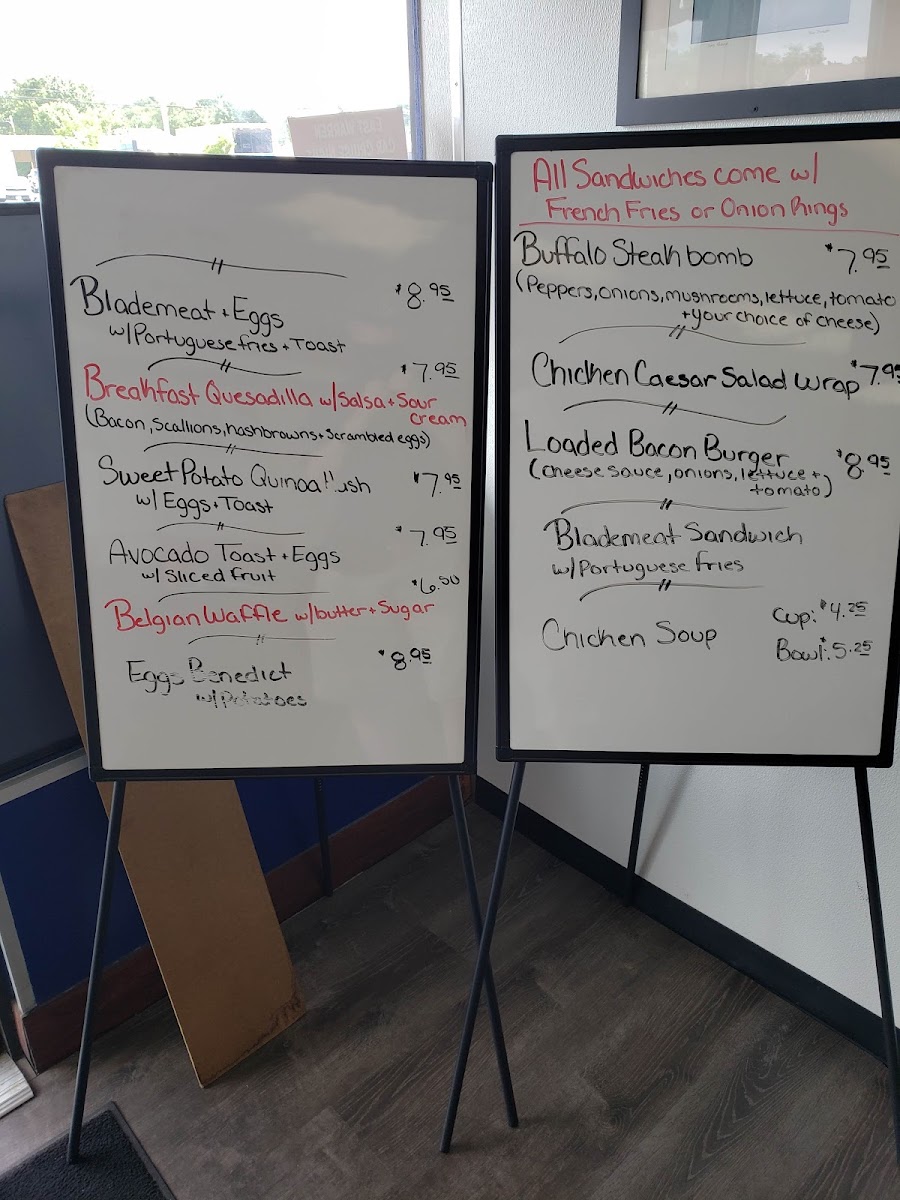 Blademeat + Eggs $8.95
w/Portuguese fries + Toast
$7.95
Breakfast Quesadilla w/Salsa + Sour
cream
(Bacon, Scallions, hashbrowns + scrambled eggs)
Sweet Potato Quinoa $7.95
w/ Eggs + Toast
Avocado Toast + Eggs $7.95
w/ Sliced fruit
$6.50
Belgian Waffle w/butter + Sugar
Eggs Benedict $8.95
w/Potatoes
All Sandwiches come w/
French Fries or Onion Rings
Buffalo Steak bomb $7.95
(Peppers, onions, mushrooms, lettuce, tomato
+ your choice of cheese)
Chicken Caesar Salad Wrap $7.95
Loaded Bacon Burger $8.95
(cheese sauce, onions, lettuce +
tomato)
Blademeat Sandwich
w/Portuguese fries
Chicken Soup Cup: $4.25
Bowl: $5.25